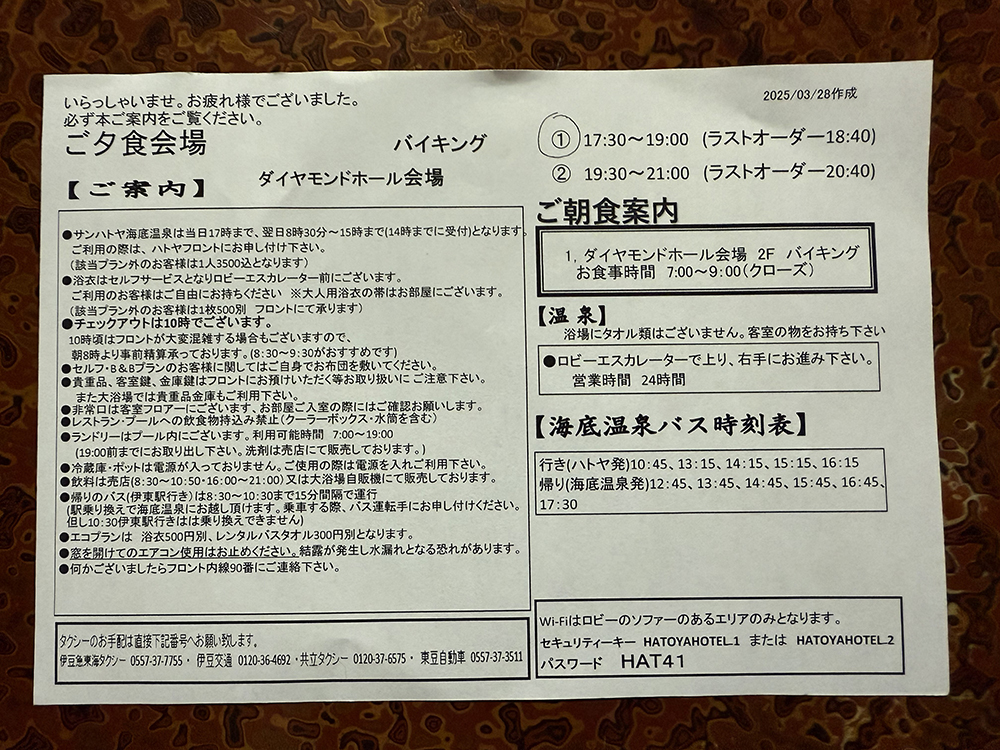 いらっしゃいませ。お疲れ様でございました。
必ず本ご案内をご覧ください。
ご夕食会場 バイキング
【ご案内】 ダイヤモンドホール会場
●サンハトヤ海底温泉は当日17時まで、翌日8時30分～15時まで(14時までに受付)となります。
ご利用の際は、ハトヤフロントにお申し付け下さい。
(該当プラン外のお客様は1人3500込となります)
●浴衣はセルフサービスとなりロビーエスカレーター前にございます。
ご利用のお客様はご自由にお持ちください ※大人用浴衣の帯はお部屋にございます。
(該当プラン外のお客様は1枚500別 フロントにて承ります)
●チェックアウトは10時でございます。
10時頃はフロントが大変混雑する場合もございますので、
朝8時より事前精算承っております。(8:30～9:30がおすすめです)
●セルフ・B＆Bプランのお客様に関してはご自身でお布団を敷いてください。
●貴重品、客室鍵、金庫鍵はフロントにお預けいただく等お取り扱いに ご注意下さい。
また大浴場では貴重品金庫もご利用下さい。
●非常口は客室フロアーにございます、お部屋ご入室の際にはご確認お願いします。
●レストラン・プールへの飲食物持込み禁止(クーラーボックス・水筒を含む)
●ランドリーはプール内にございます。利用可能時間 7:00～19:00
(19:00前までにお取り出し下さい。洗剤は売店にて販売しております。)
●冷蔵庫・ポットは電源が入っておりません。ご使用の際は電源を入れご利用下さい。
●飲料は売店(8:30～10:50・16:00～21:00)又は大浴場自販機にて販売しております。
●帰りのバス(伊東駅行き)は8:30～10:30まで15分間隔で運行
(駅乗り換えで海底温泉にお越し頂けます。乗車する際、バス運転手にお申し付けください。
但し10:30伊東駅行きはは乗り換えできません)
●エコプランは 浴衣500円別、レンタルバスタオル300円別となります。
●窓を開けてのエアコン使用はお止めください。結露が発生し水漏れとなる恐れがあります。
●何かございましたらフロント内線90番にご連絡下さい。
タクシーのお手配は直接下記番号へお願い致します。
伊豆急東海タクシー 0557-37-7755・ 伊豆交通 0120-36-4692 ・共立タクシー 0120-37-6575・ 東豆自動車 0557-37-3511
2025/03/28作成
① 17:30～19:00 (ラストオーダー18:40)
② 19:30～21:00 (ラストオーダー20:40)
ご朝食案内
1, ダイヤモンドホール会場 2F バイキング
お食事時間 7:00～9:00(クローズ)
【温泉】
浴場にタオル類はございません。客室の物をお持ち下さい
●ロビーエスカレーターで上り、右手にお進み下さい。
営業時間 24時間
【海底温泉バス時刻表】
行き(ハトヤ発)10:45、13:15、14:15、15:15、16:15
帰り(海底温泉発)12:45、13:45、14:45、15:45、16:45、
17:30
Wi-Fiはロビーのソファーのあるエリアのみとなります。
セキュリティーキー HATOYAHOTEL.1 または HATOYAHOTEL.2
パスワード HAT41